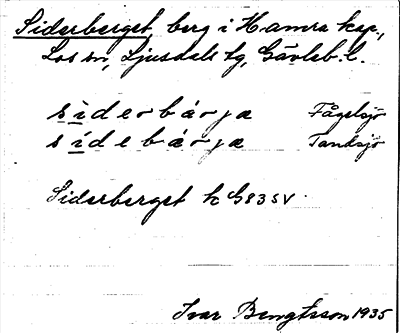 Siderberget, berg i Hamra kap.,
Los sn, Ljusdals tg, Gävleb. l.
sìderbárja Fågelsjö
sídebárja Tandsjö
Siderberget k G83SV
Ivar Bengtsson 1935